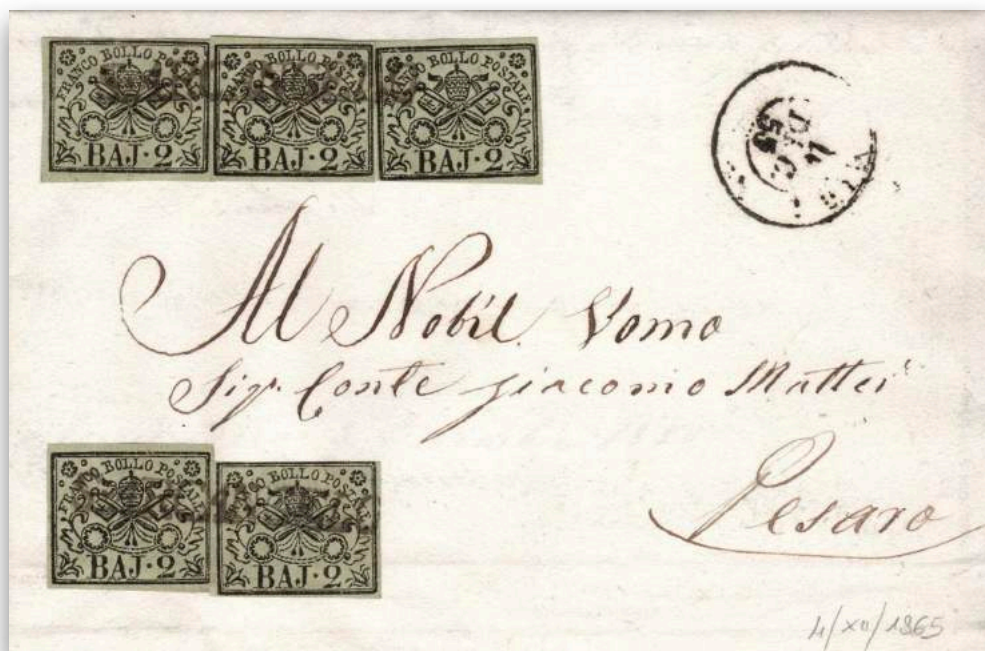 FRANCO BOLLO POSTALE
BAJ·2
FRANCO BOLLO POSTALE
BAJ·2
FRANCO BOLLO POSTALE
BAJ·2
Al Nobil Uomo
Sigr. Conte Giacomo Mattei
Pesaro
FRANCO BOLLO POSTALE
BAJ·2
FRANCO BOLLO POSTALE
BAJ·2
4/XII/1865